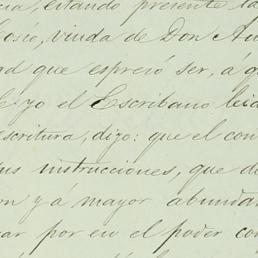 cia, estando presente la
Cosio, viuda de Don An
ad que espresó ser, á q
e yo el Escribano leida
escritura, digo: que el con
sus instrucciones, que de
on y á mayor abundan
ar por en el poder con